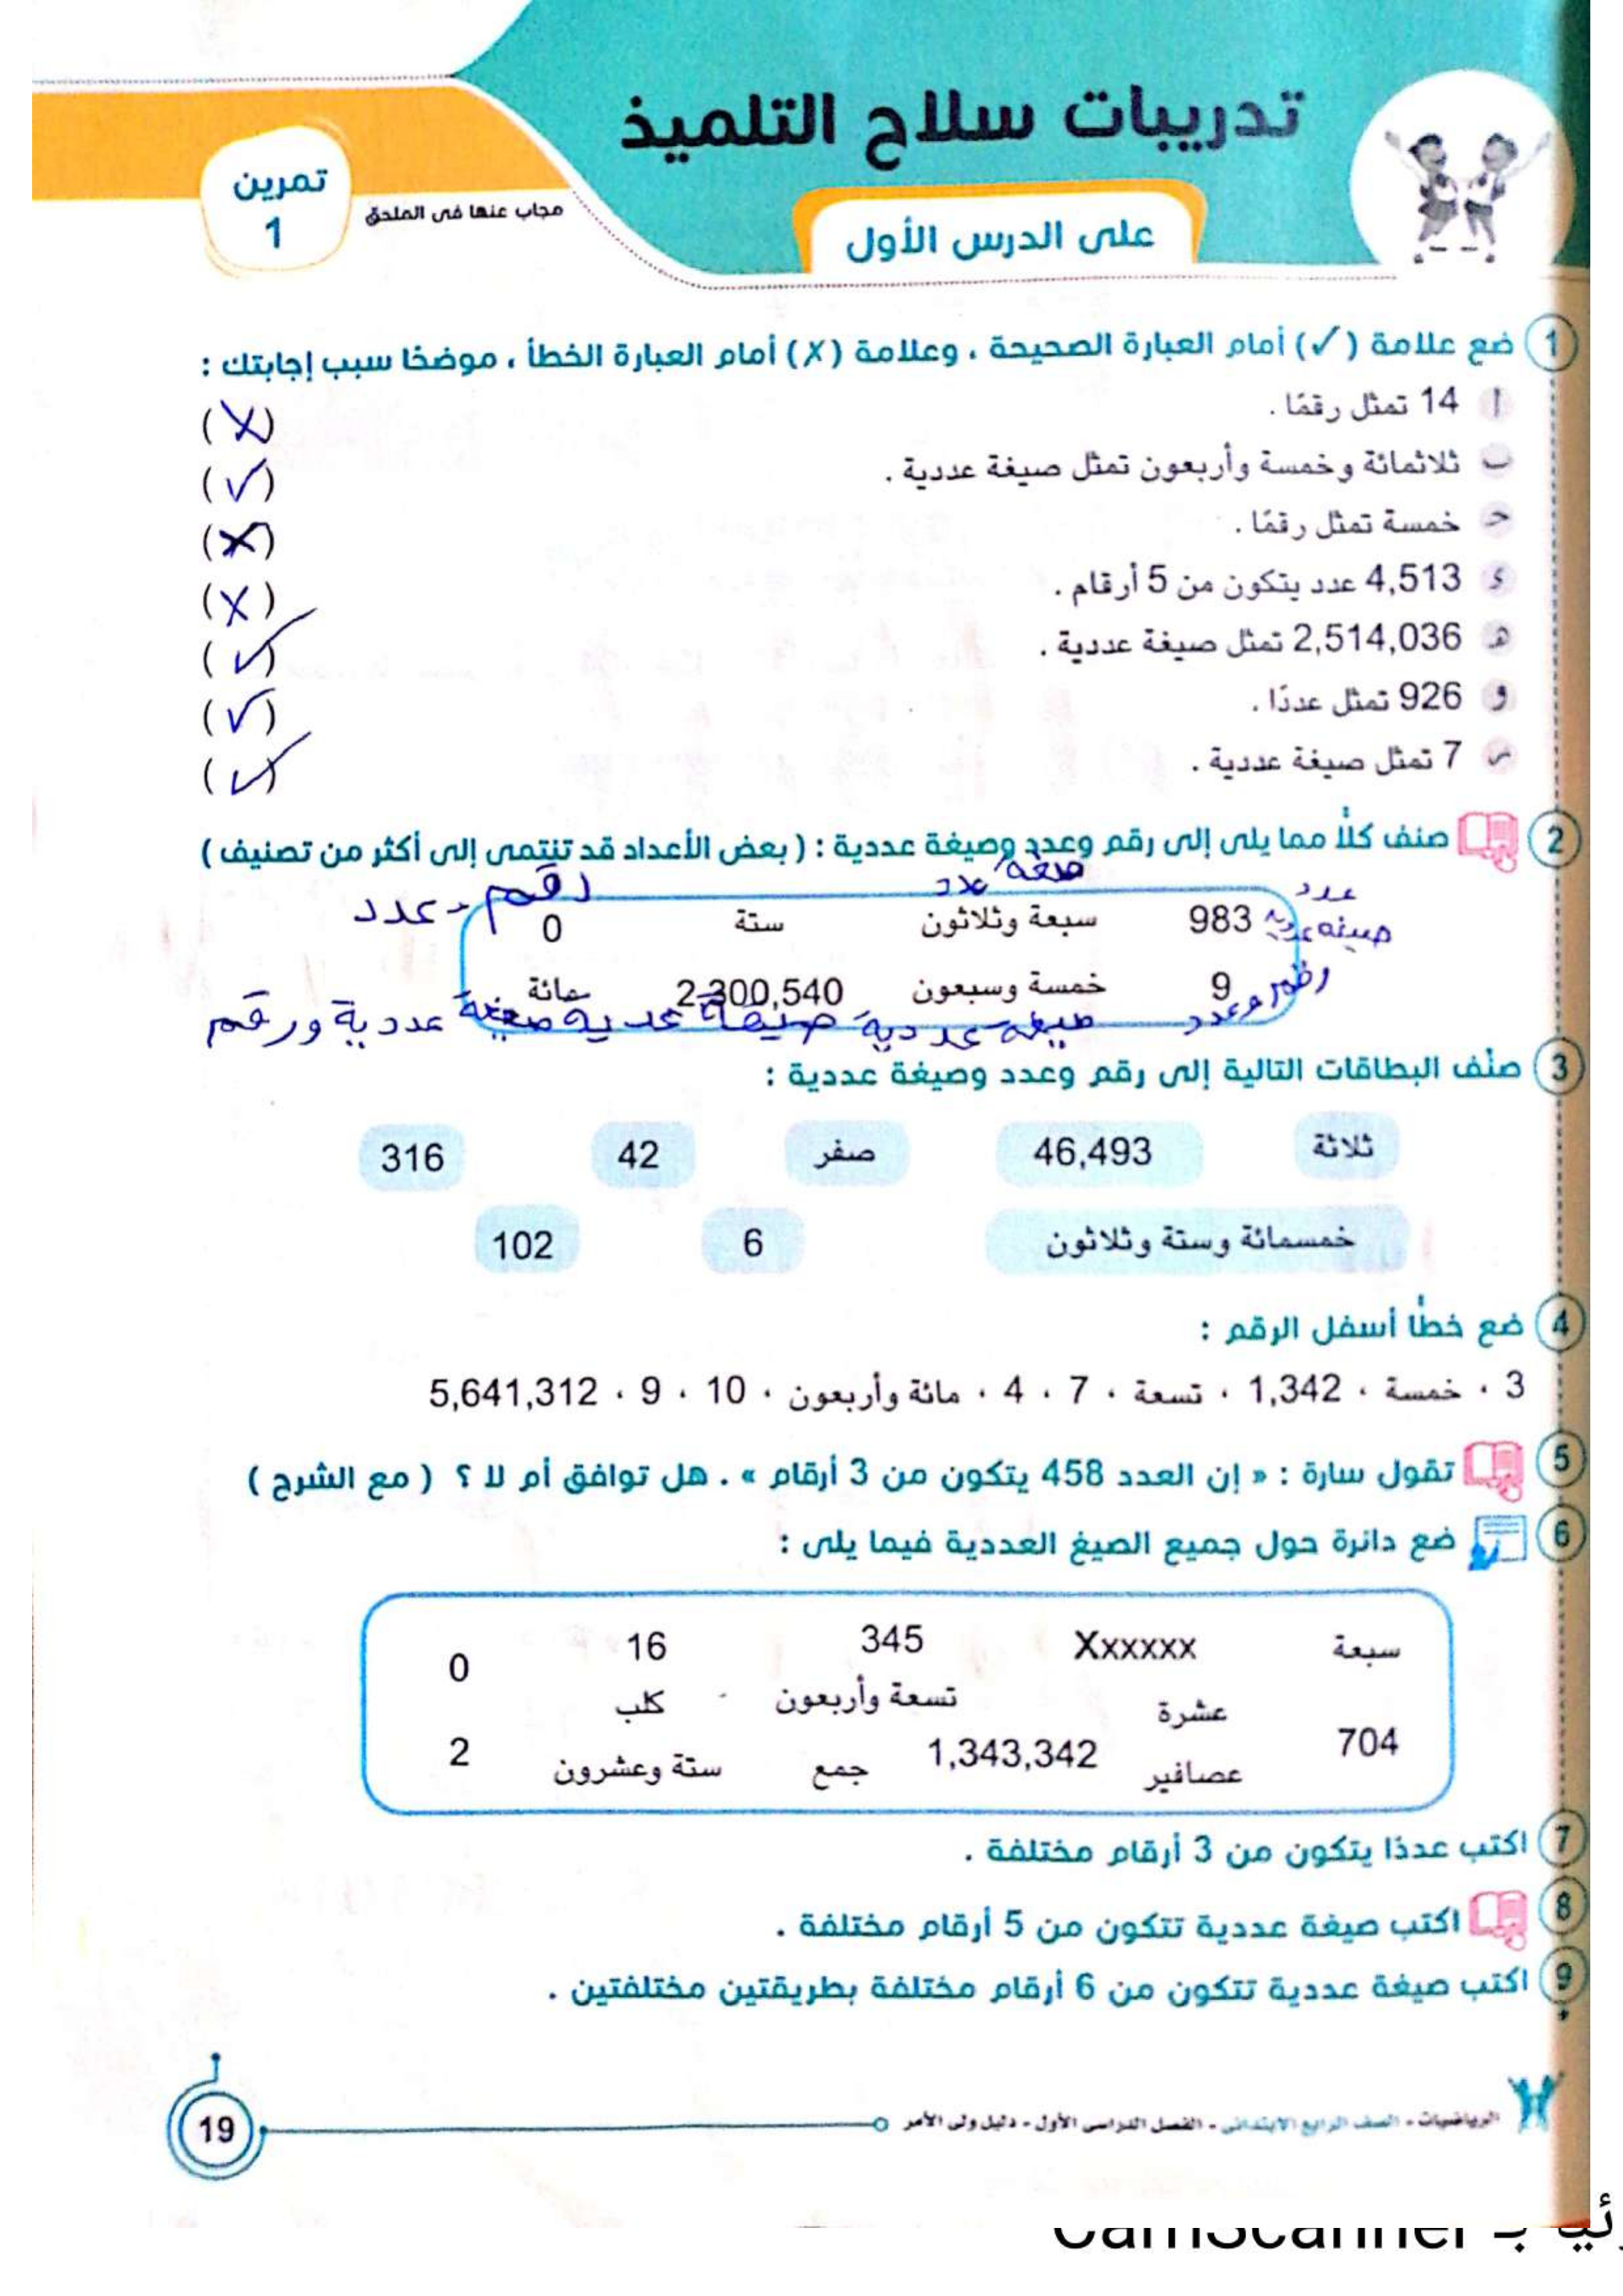 تدريبات سلاح التلميذ
تمرين
1
مجاب عنها فى الملحق
على الدرس الأول
1 ضع علامة (✓) أمام العبارة الصحيحة ، وعلامة (✗) أمام العبارة الخطأ ، موضحًا سبب إجابتك :
أ 14 تمثل رقمًا . (✗)
ب ثلاثمائة وخمسة وأربعون تمثل صيغة عددية . (✓)
حـ خمسة تمثل رقمًا . (✗)
ء 4,513 عدد يتكون من 5 أرقام . (✗)
هـ 2,514,036 تمثل صيغة عددية . (✓)
و 926 تمثل عددًا . (✓)
ر 7 تمثل صيغة عددية . (✓)
2 صنف كلًا مما يلى إلى رقم وعدد وصيغة عددية : ( بعض الأعداد قد تنتمى إلى أكثر من تصنيف )
صيغه عدد
عدد رقم - عدد
983 سبعة وثلاثون ستة 0
صيغه عدديه
9 خمسة وسبعون 2,300,540 مائة
رقم وعدد صيغه عددية صيغة عدديه صيغة عددية ورقم
3 صنف البطاقات التالية إلى رقم وعدد وصيغة عددية :
ثلاثة 46,493 صفر 42 316
خمسمائة وستة وثلاثون 6 102
4 ضع خطًا أسفل الرقم :
3 ، خمسة ، 1,342 ، تسعة ، 7 ، 4 ، مائة وأربعون ، 10 ، 9 ، 5,641,312
5 تقول سارة : « إن العدد 458 يتكون من 3 أرقام » . هل توافق أم لا ؟ ( مع الشرح )
6 ضع دائرة حول جميع الصيغ العددية فيما يلى :
سبعة Xxxxxxx 345 16 0
عشرة تسعة وأربعون كلب
704 عصافير 1,343,342 جمع ستة وعشرون 2
7 اكتب عددًا يتكون من 3 أرقام مختلفة .
8 اكتب صيغة عددية تتكون من 5 أرقام مختلفة .
9 اكتب صيغة عددية تتكون من 6 أرقام مختلفة بطريقتين مختلفتين .
الرياضيات - الصف الرابع الابتدائى - الفصل الدراسى الأول - دليل ولى الأمر
19
بـ CamScanner